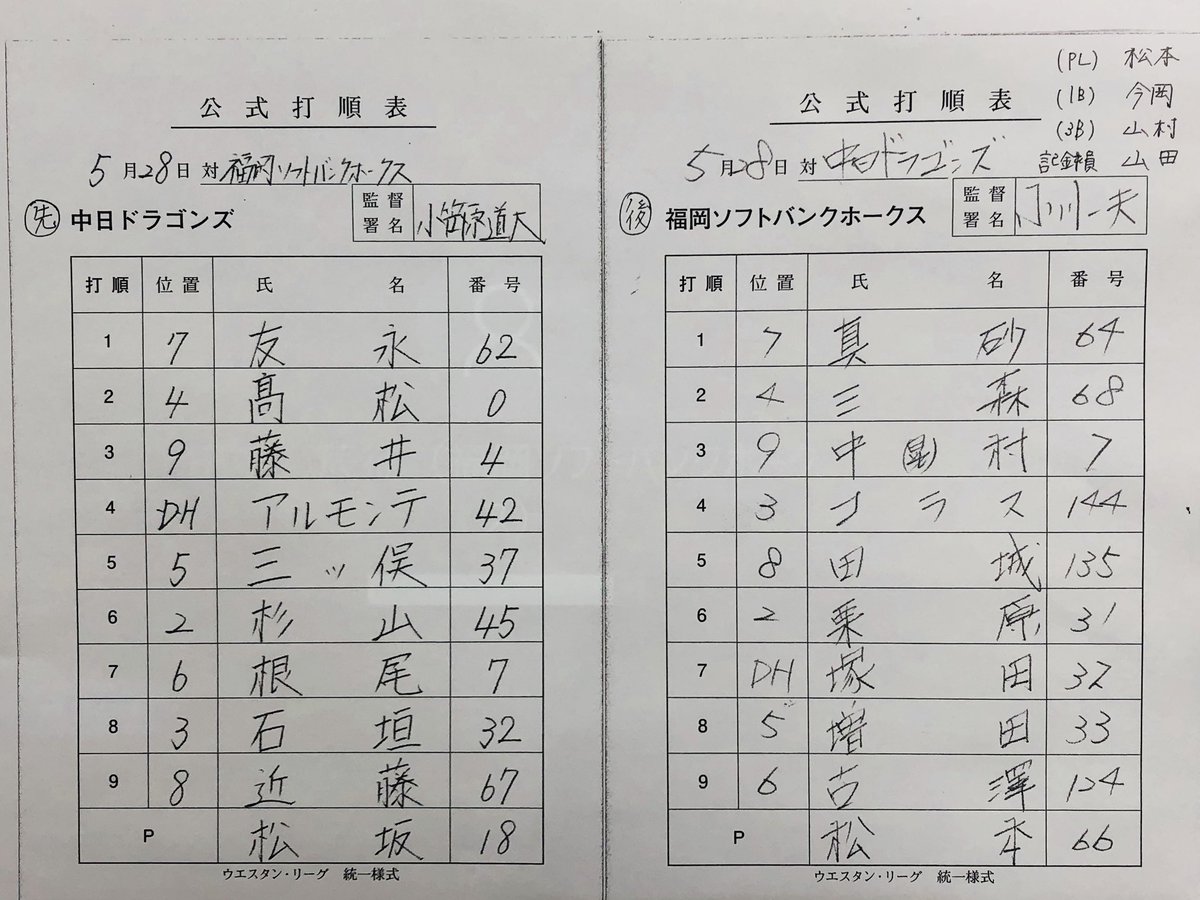 公式打順表
5月28日 対 福岡ソフトバンクホークス
先 中日ドラゴンズ 監督署名 小笠原道大
打順 位置 氏名 番号
1 7 友永 62
2 4 髙松 0
3 9 藤井 4
4 DH アルモンテ 42
5 5 三ッ俣 37
6 2 杉山 45
7 6 根尾 7
8 3 石垣 32
9 8 近藤 67
P 松坂 18
ウエスタン・リーグ 統一様式
(PL) 松本
(1B) 今岡
(3B) 山村
記録員 山田
公式打順表
5月28日 対 中日ドラゴンズ
後 福岡ソフトバンクホークス 監督署名 小川一夫
打順 位置 氏名 番号
1 7 真砂 64
2 4 三森 68
3 9 中村(晃) 7
4 3 コラス 144
5 8 田城 135
6 2 栗原 31
7 DH 塚田 37
8 5 増田 33
9 6 古澤 124
P 松本 66
ウエスタン・リーグ 統一様式